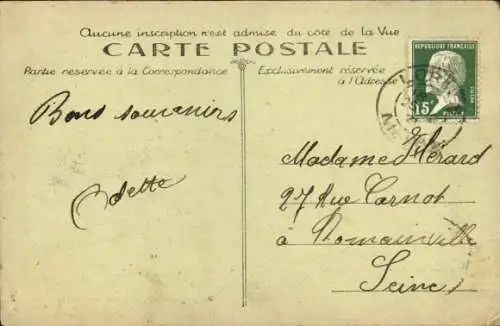 Aucune inscription n'est admise du côté de la Vue
CARTE POSTALE
Partie réservée à la Correspondance
Exclusivement réservée
à l'Adresse
REPUBLIQUE FRANÇAISE
15
Bons souvenirs
Odette
Madame Hérard
27 Rue Carnot
à Romainville
Seine